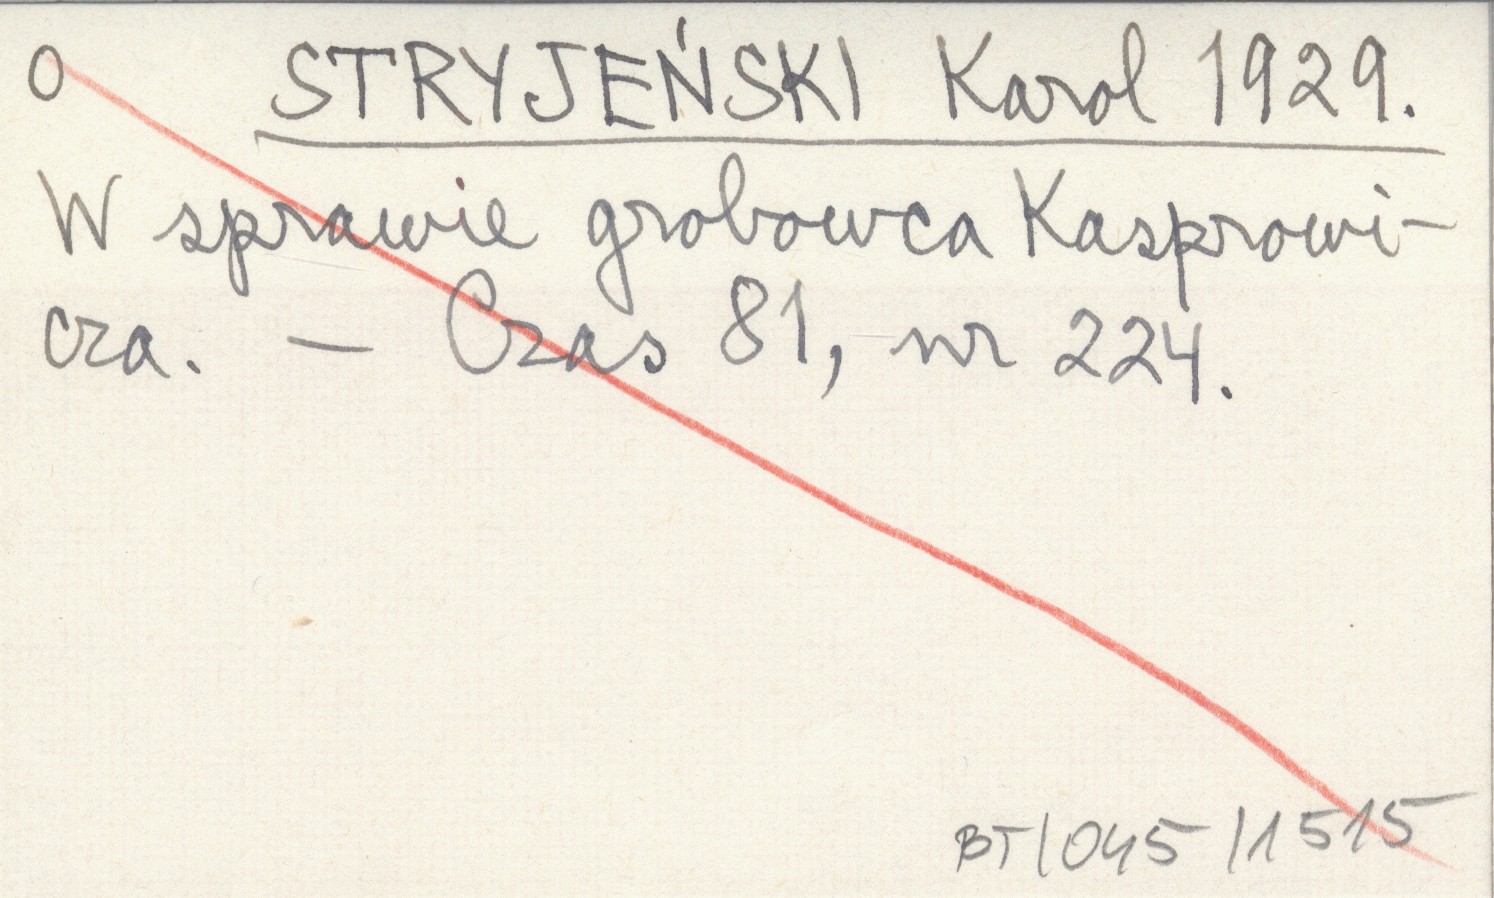 O STRYJEŃSKI Karol 1929.
W sprawie grobowca Kasprowi-
cza. — Czas 81, nr 224.
BT/045/1515